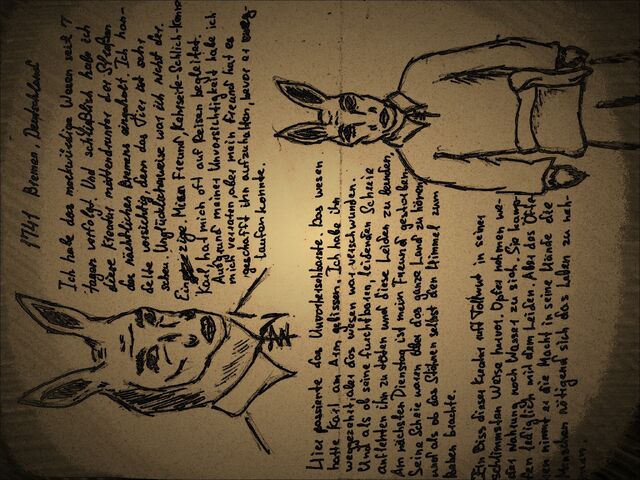 1741 Bremen, Deutschland
Ich habe das merkwürdige Wesen seit 7
Tagen verfolgt und schließlich habe ich
diese Kreatur der Straßen
des nächtlichen Bremens eingeholt. Ich han-
delte vorsichtig, denn das Tier ist sehr
scheu. Unglücklicherweise war ich nicht der
Einzige. Mein Freund,
Karl, hat mich oft auf Reisen begleitet.
Aufgrund meiner Unvorsichtigkeit habe ich
mich verraten aber mein Freund hat es
geschafft ihn aufzuhalten, bevor er weg-
laufen konnte.
Hier passierte das Unvorhersehbarste. Das Wesen
hatte Karl am Arm gebissen. Ich habe ihn
weggezerrt, aber das Wesen war verschwunden.
Und als ob seine furchtbaren, leidenden Schreie
auflehten ihn zu töten und diese Leiden zu beenden,
Am nächsten Dienstag ist mein Freund gestorben.
Seine Schreie waren über das ganze Land zu hören
und als ob das Stöhnen selbst den Himmel zum
Beben brachte.
Ein Biss dieser Kreatur ruft Tollwut in seiner
schlimmsten Weise hervor. Opfer nehmen we-
der Nahrung noch Wasser zu sich. Sie kämp-
fen lediglich mit dem Leiden. Aber des Öfte-
ren nimmt er die Macht in seine Hände die
Menschen nötigend sich das Leben zu neh-
men.